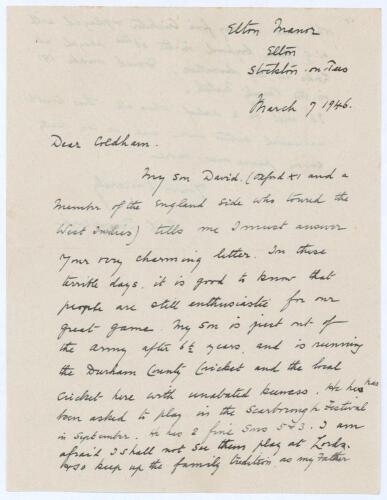 Elton Manor
Elton
Stockton-on-Tees
March 7 1946.
Dear Coldham.
My son David. (Oxford XI and a
Member of the England side who toured the
West Indies) tells me I must answer
your very charming letter. In these
terrible days, it is good to know that
people are still enthusiastic for our
great game. My son is just out of
the army after 6½ years, and is running
the Durham County Cricket and the local
Cricket here with unabated keenness. He has
been asked to play in the Scarborough Festival
in September. He has 2 fine sons 5 & 3. I am
afraid I shall not see them play at Lords.
& so keep up the family tradition, as my Father